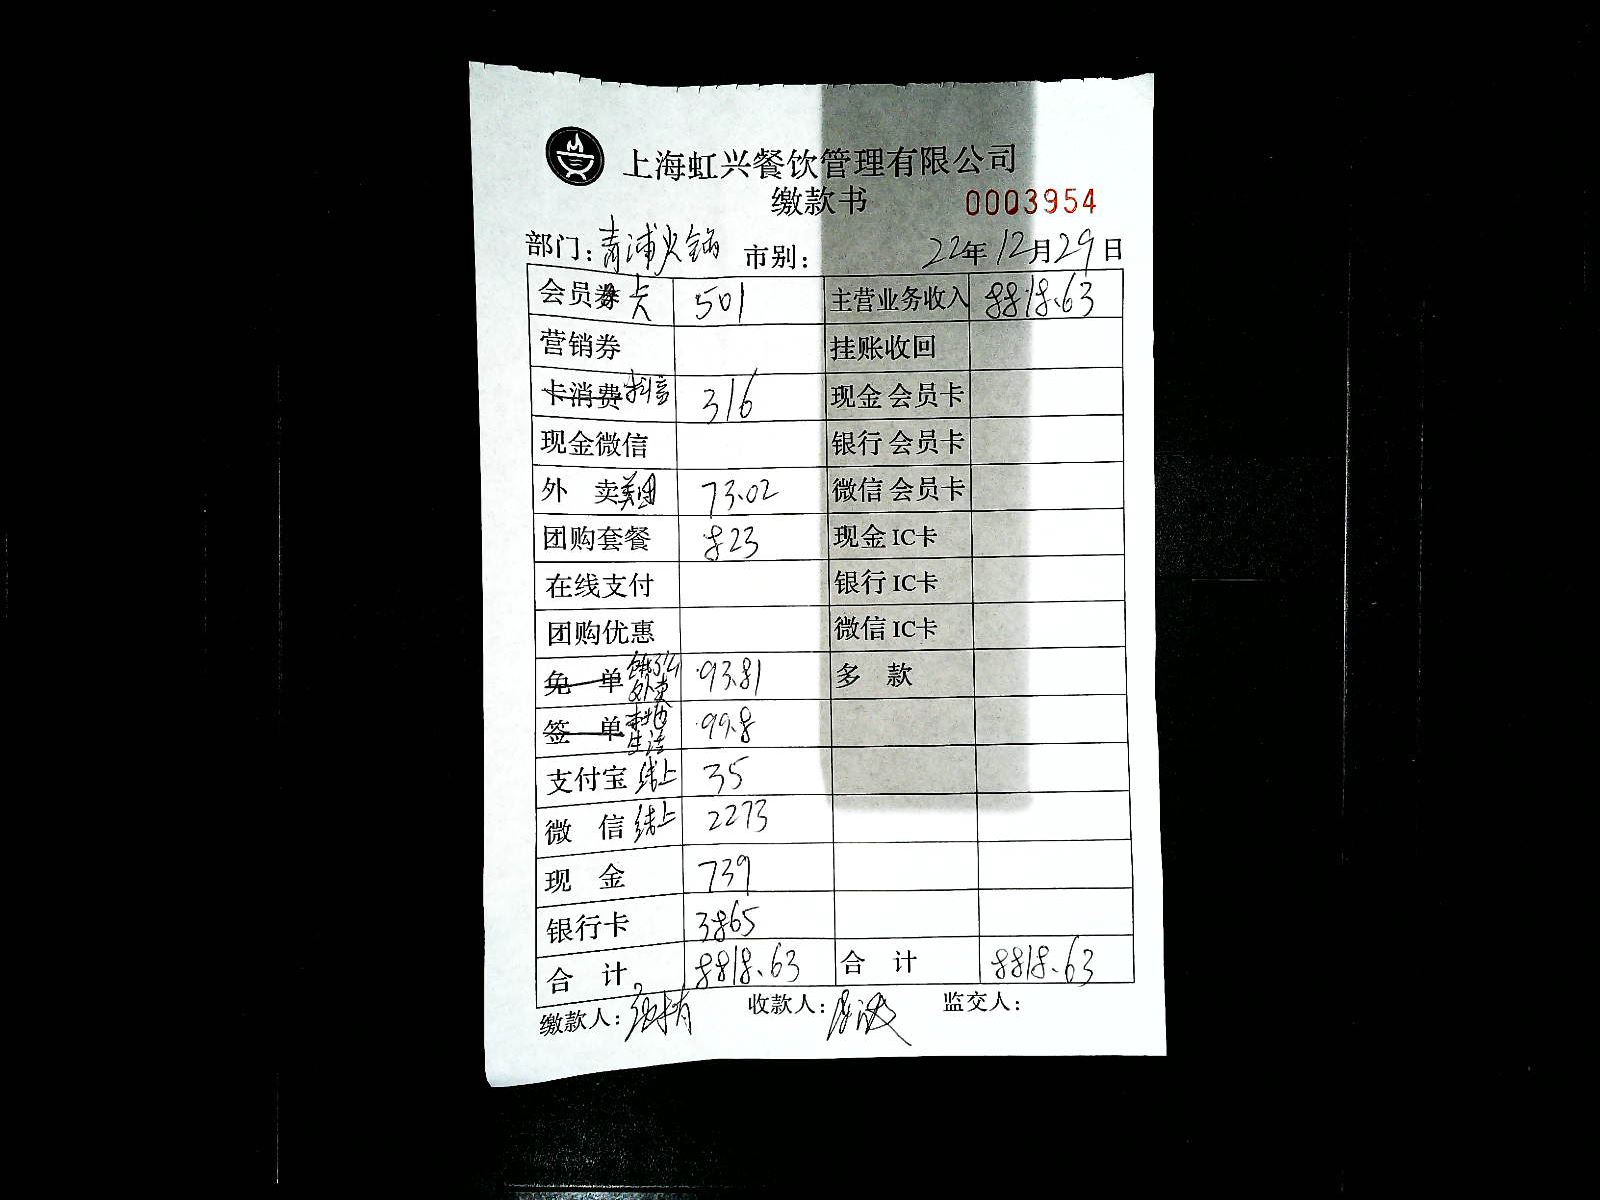 上海虹兴餐饮管理有限公司
缴款书 0003954
部门：青浦火锅 市别： 22年12月29日
会员券卡 501 主营业务收入 8818.63
营销券 挂账收回
卡消费抖音 316 现金 会员卡
现金微信 银行 会员卡
外 卖美团 73.02 微信 会员卡
团购套餐 823 现金 IC卡
在线支付 银行 IC卡
团购优惠 微信 IC卡
免 单饿了么外卖 93.81 多 款
签 单 生活 99.8
支付宝 线上 35
微 信 线上 2273
现 金 739
银行卡 3865
合 计 8818.63 合 计 8818.63
缴款人： 收款人： 监交人：